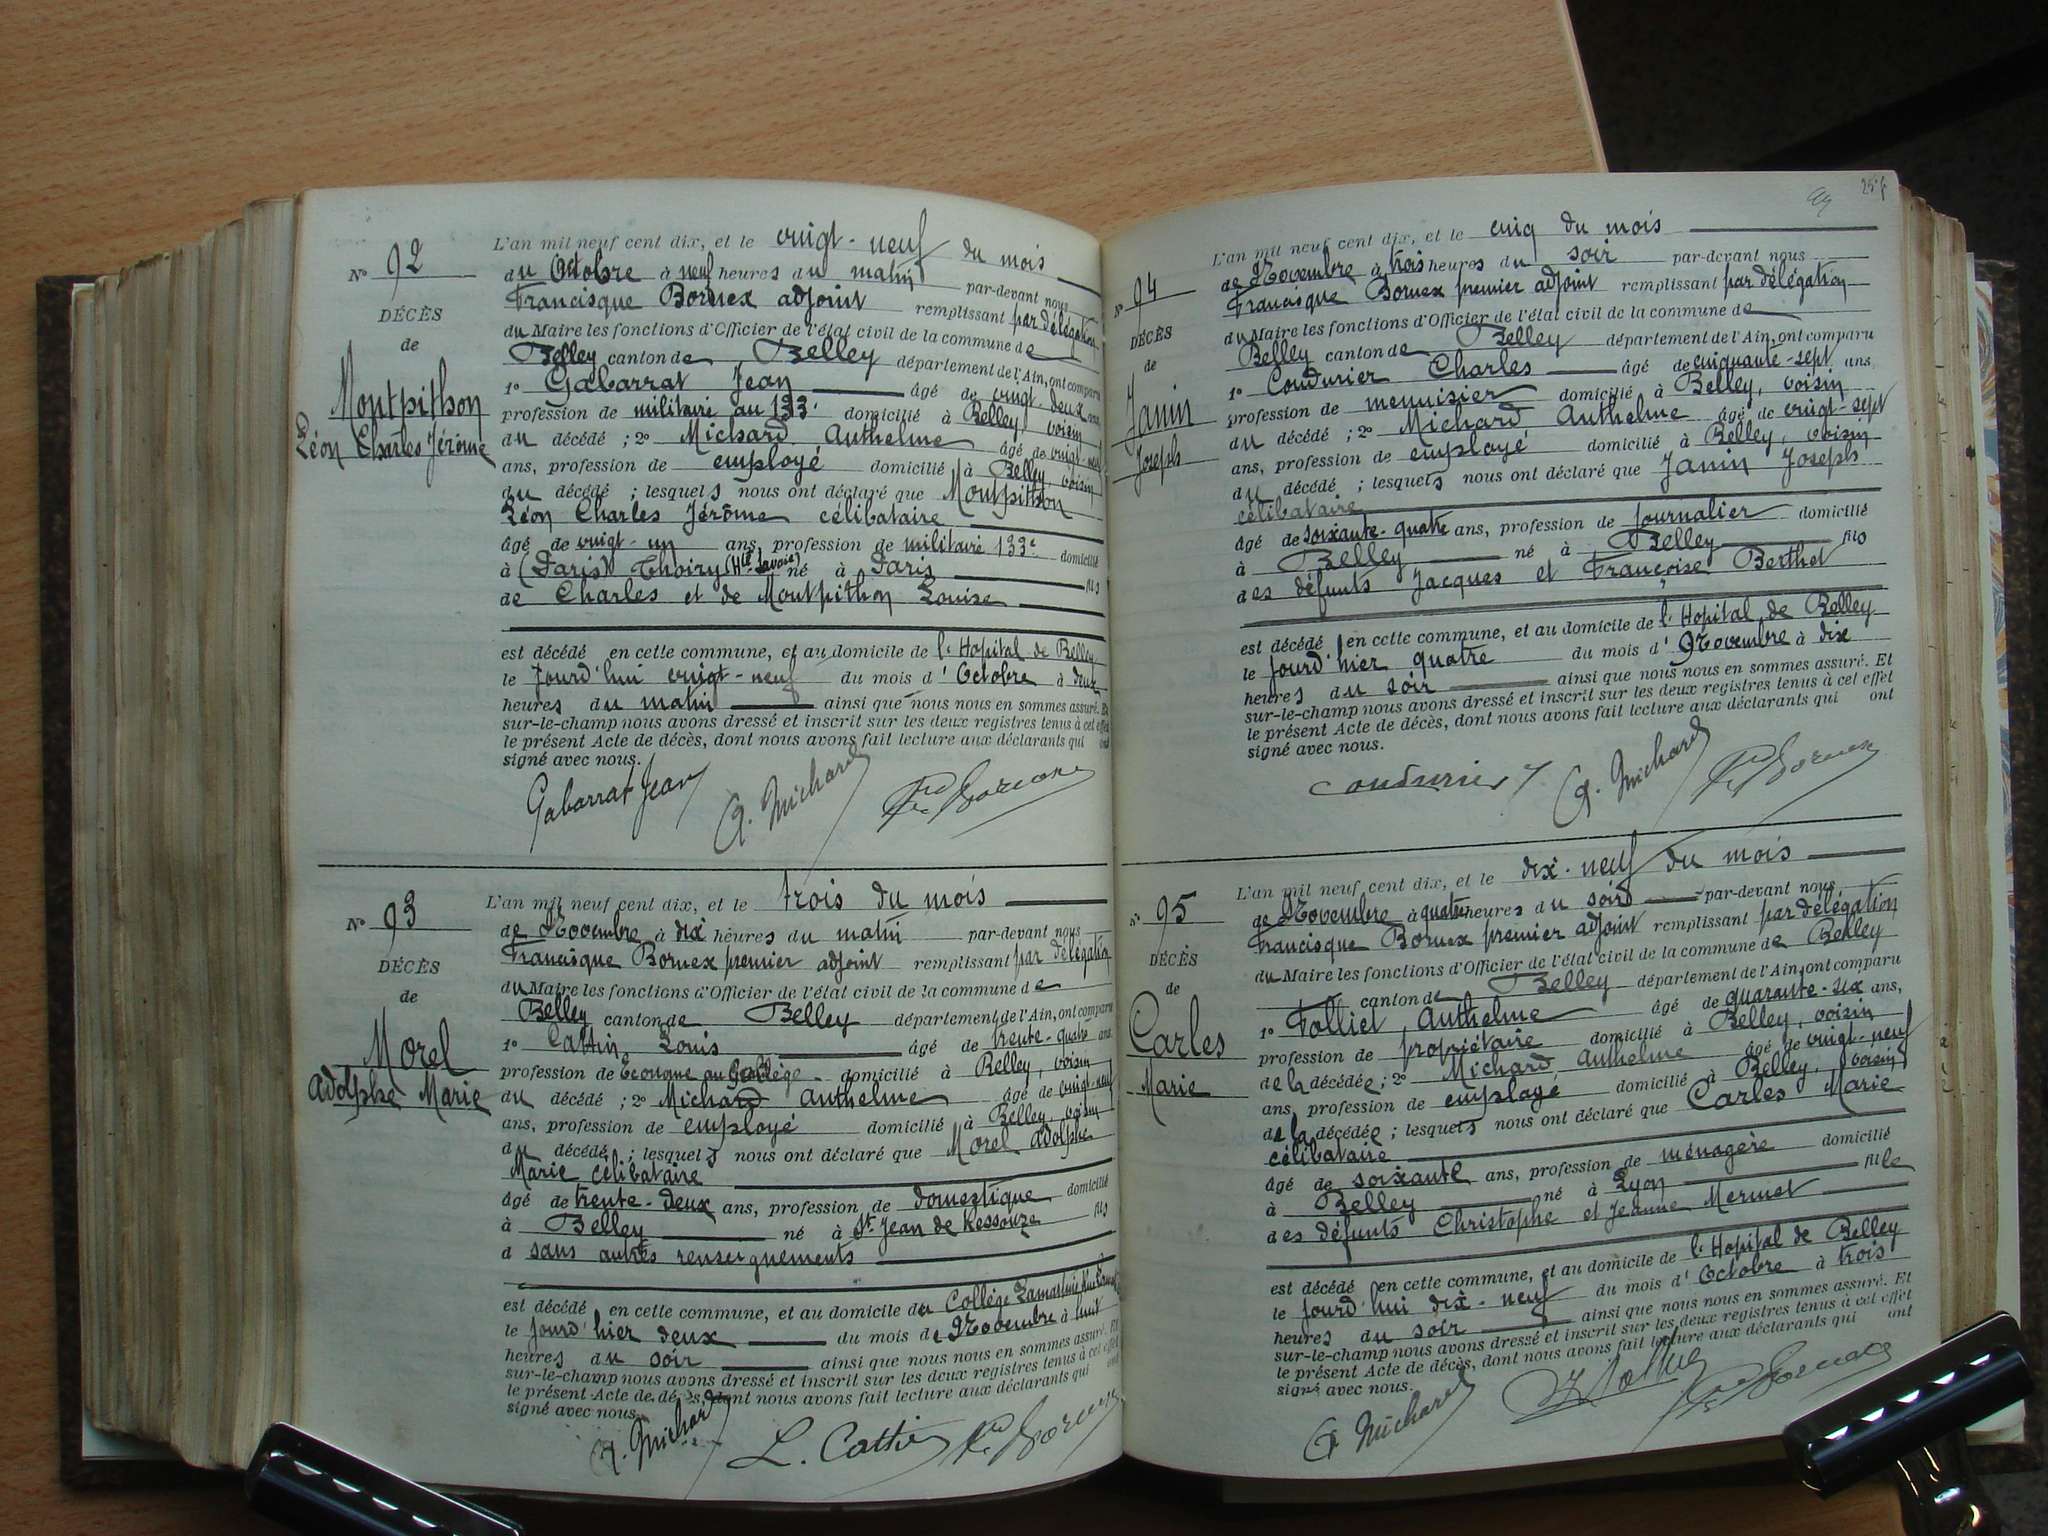 L'an mil neuf cent dix, et le vingt-neuf du mois
Nº 92
du Octobre à neuf heures du matin par-devant nous
Francisque Bornex adjoint remplissant par délégation
DÉCÈS
du Maire les fonctions d'Officier de l'état civil de la commune de
de
Belley canton de Belley département de l'Ain, ont comparu
Montpithon
Léon Charles Jérôme
1º Gabarrat Jean âgé de vingt-deux ans
profession de militaire au 133e domicilié à Belley voisin
du décédé ; 2º Michard Anthelme âgé de vingt-neuf
ans, profession de employé domicilié à Belley, voisin
du décédé ; lesquels nous ont déclaré que Montpithon
Léon Charles Jérôme célibataire
âgé de vingt-un ans, profession de militaire 133e domicilié
à (Paris) Thoiry (Hte Savoie) né à Paris fils
de Charles et de Montpithon Louise
est décédé en cette commune, et au domicile de l'Hopital de Belley
le jourd'hui vingt-neuf du mois d'Octobre à deux
heures du matin ainsi que nous nous en sommes assuré. Et
sur-le-champ nous avons dressé et inscrit sur les deux registres tenus à cet effet
le présent Acte de décès, dont nous avons fait lecture aux déclarants qui ont
signé avec nous.
Gabarrat Jean A. Michard Fque Bornex
L'an mil neuf cent dix, et le trois du mois
Nº 93
de Novembre à dix heures du matin par-devant nous
Francisque Bornex premier adjoint remplissant par délégation
DÉCÈS
du Maire les fonctions d'Officier de l'état civil de la commune de
de
Belley canton de Belley département de l'Ain, ont comparu
Morel
Adolphe Marie
1º Cattin Louis âgé de trente-quatre ans
profession de Econome au Collège domicilié à Belley, voisin
du décédé ; 2º Michard Anthelme âgé de vingt-neuf
ans, profession de employé domicilié à Belley, voisin
du décédé ; lesquels nous ont déclaré que Morel Adolphe
Marie célibataire
âgé de trente-deux ans, profession de domestique domicilié
à Belley né à St. Jean de Kessouze fils
d sans autres renseignements
est décédé en cette commune, et au domicile du Collège Lamartine
le jourd'hier deux du mois de Novembre à huit
heures du soir ainsi que nous nous en sommes assuré. Et
sur-le-champ nous avons dressé et inscrit sur les deux registres tenus à cet effet
le présent Acte de décès, dont nous avons fait lecture aux déclarants qui ont
signé avec nous.
A. Michard L. Cattin Fque Bornex
L'an mil neuf cent dix, et le cinq du mois
Nº 94
de Novembre à trois heures du soir par-devant nous
Francisque Bornex premier adjoint remplissant par délégation
DÉCÈS
du Maire les fonctions d'Officier de l'état civil de la commune de
de
Belley canton de Belley département de l'Ain, ont comparu
Janin
Joseph
1º Coudurier Charles âgé de cinquante-sept ans
profession de menuisier domicilié à Belley, voisin
du décédé ; 2º Michard Anthelme âgé de vingt-sept
ans, profession de employé domicilié à Belley, voisin
du décédé ; lesquels nous ont déclaré que Janin Joseph
célibataire
âgé de soixante-quatre ans, profession de journalier domicilié
à Belley né à Belley fils
des défunts Jacques et Françoise Berthet
est décédé en cette commune, et au domicile de l'Hopital de Belley
le jourd'hier quatre du mois d'Novembre à dix
heures du soir ainsi que nous nous en sommes assuré. Et
sur-le-champ nous avons dressé et inscrit sur les deux registres tenus à cet effet
le présent Acte de décès, dont nous avons fait lecture aux déclarants qui ont
signé avec nous.
Coudurier A. Michard Fque Bornex
L'an mil neuf cent dix, et le dix-neuf du mois
Nº 95
de Novembre à quatre heures du soir par-devant nous
Francisque Bornex premier adjoint remplissant par délégation
DÉCÈS
du Maire les fonctions d'Officier de l'état civil de la commune de Belley
de
canton de Belley département de l'Ain, ont comparu
Carles
Marie
1º Folliet Anthelme âgé de quarante-six ans,
profession de propriétaire domicilié à Belley, voisin
de la décédée ; 2º Michard, Anthelme âgé de vingt-neuf
ans, profession de employé domicilié à Belley, voisin
de la décédée ; lesquels nous ont déclaré que Carles Marie
célibataire
âgé de soixante ans, profession de ménagère domicilié
à Belley né à Lyon fille
des défunts Christophe et Jeanne Mermet
est décédé en cette commune, et au domicile de l'Hopital de Belley
le jourd'hui dix-neuf du mois d'Octobre à trois
heures du soir ainsi que nous nous en sommes assuré. Et
sur-le-champ nous avons dressé et inscrit sur les deux registres tenus à cet effet
le présent Acte de décès, dont nous avons fait lecture aux déclarants qui ont
signé avec nous.
A. Michard Fque Bornex